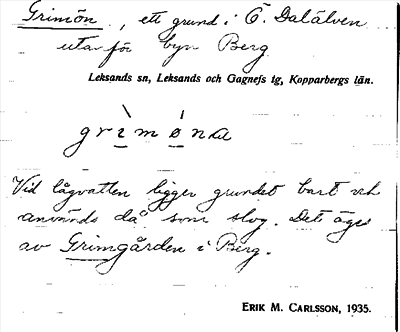 Grimön, ett grund i Ö. Dalälven
utanför byn Berg
Leksands sn, Leksands och Gagnefs tg, Kopparbergs län.
grìmø̀na
Vid lågvatten ligger grundet bart och
användes då som slog. Det äges
av Grimgården i Berg.
ERIK M. CARLSSON, 1935.